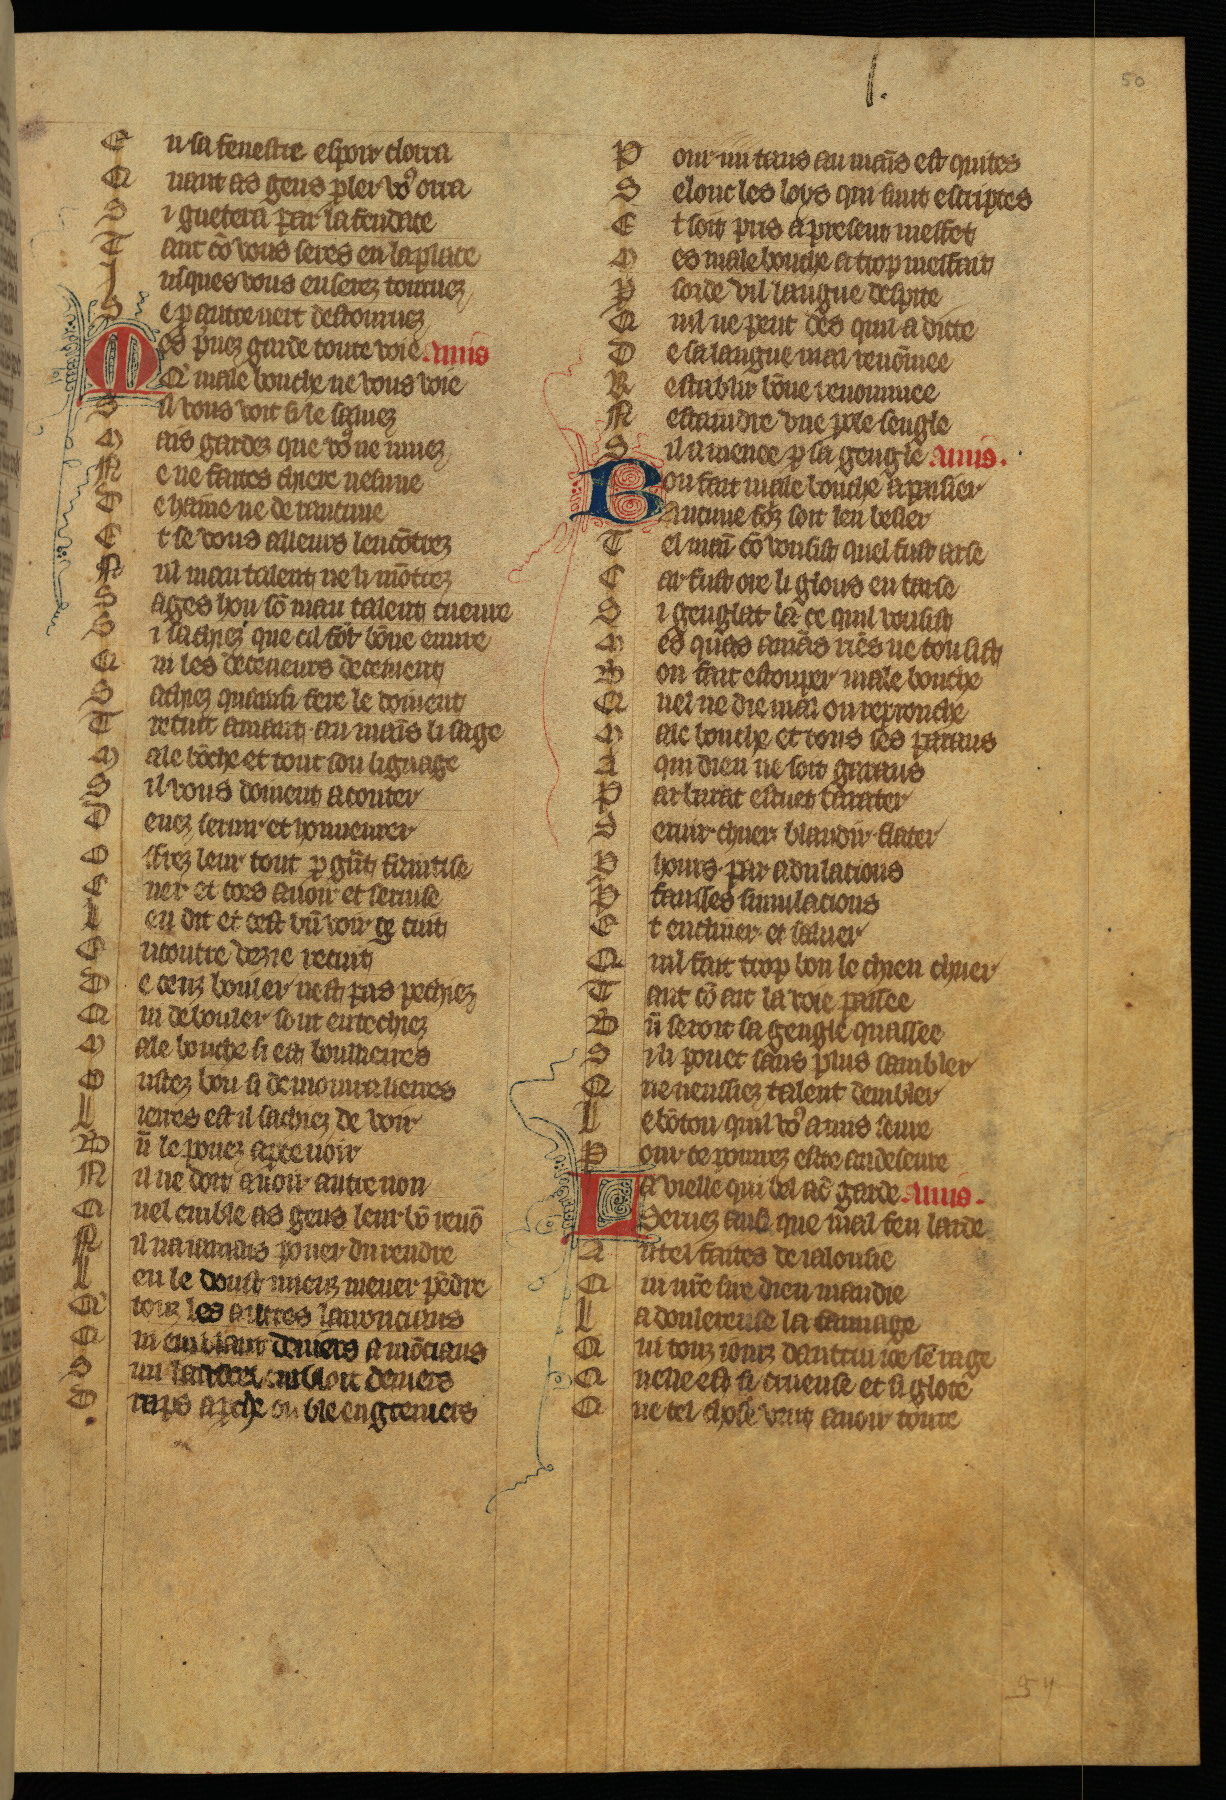 l.
50
En sa fenestre espoir clorra
Quant as gens pler vo9 orra
Si guetera par la fendace
Tant cō vous seres en la place
Iusques vous en serez tournez
Se p autre nert destournez
Mes pnez garde toute voie. Amis
Q̄ male bouche ne vous voie
Sil vous voit si le saluez
Mais gardez que vo9 ne muez
Ne ne faites chiere nesune
De haine ne de rancune
Et se vous ailleurs lencōtrez
Nul mautalent ne li mōtrez
Sages hon sō mau talent cueuure
Si sachiez que cil fōt bōne euure
Qui les deceueurs decoiuent
Sachiez quainsi fere le doiuent
Trestuit amant au mains li sage
Male bōche et tout son lignage
Sil vous doiuent acouter
Deuez seruir et honneurer
Offrez leur tout p gnt faintise
Cuer et cors auoir et seruise
Len dit et cest vn voir ce cuit
Encontre vezie recuit
De ceuz bouler nest pas pechiez
Qui de bouler sont entechiez
Male bouche si est boulieres
Ostez bou si demourra lierres
Lierres est il sachiez de voir
Bn le pouez aperceuoir
Nil ne doit auoir autre non
Quel emble as gens leur bō renō
Nil na iamais pouer du rendre
Len le deust mieuz mener pēdre
Que touz les autres larronciaus
Qui emblant deniers a mōciaus
Sun larrecel embloit deniers
Draps a pche ou ble en greniers
Pour iiii tans au mains est quites
Selonc les loys qui sunt escriptes
Et soit pris a present meffet
Mes male bouche a trop meffait
Par sorde vil langue despite
Quil ne peut des quil a dicte
De sa langue mal renōmee
Restablir bōne renommee
Nestaindre vne pole sengle
Sil a menee p sa gengle Amis.
Bon fait male bouche apaisier
Aucune foiz soit len besier
Tel main cō voulsist quel fust arse
Car fust ore li glous en tarse
Si genglat la ce quil vousist
Mes quas amās riēs ne tousist
Bon fait estouper male bouche
Quel ne die mal ou reprouche
Male bouche et tous ses parans
A qui dieu ne soit garans
Par barat estuet barater
Seruir chuer blandir flater
Phours par adulacions
Par fausses simulacions
Et encliner et saluer
Quil fait trop bon le chien chuer
Tant cō ait la voie passee
Bn seroit sa gengle quassee
Si li pouet sans plus sambler
Que neussiez talent dembler
Le boton quil vo9 a mis seure
Pour ce pourrez estre au deseure
La vielle qui bel ac garde Amis.
Seruez ausi que mal feu larde
Autel faites de ialousie
Que nre sire dieu maudie
La doulereuse la sauuage
Qui touz iours dautrui ioie sērage
Quelle est si crueuse et si gloute
Que tel chose veut auoir toute
54